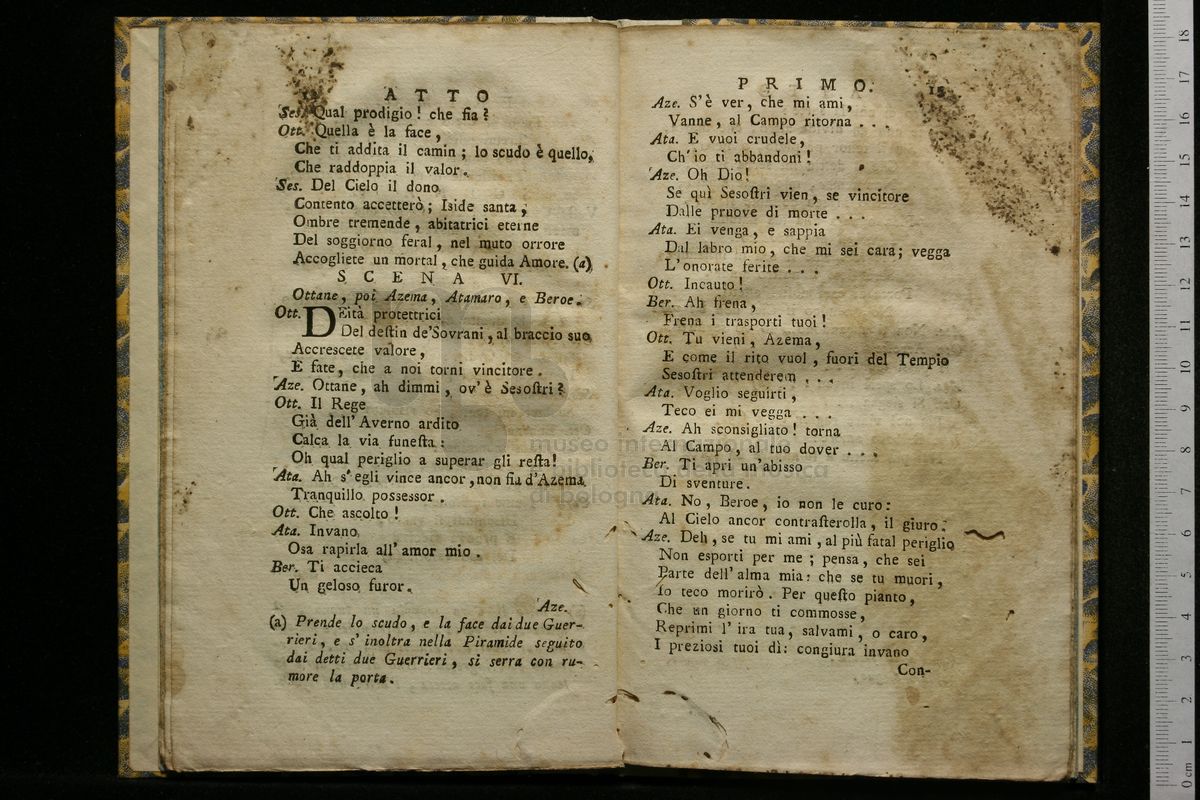 12 ATTO
Ses. Qual prodigio! che fia?
Ott. Quella è la face,
Che ti addita il camin; lo scudo è quello,
Che raddoppia il valor.
Ses. Del Cielo il dono
Contento accetterò; Iside santa,
Ombre tremende, abitatrici eterne
Del soggiorno feral, nel muto orrore
Accogliete un mortal, che guida Amore. (a)
SCENA VI.
Ottane, poi Azema, Atamaro, e Beroe.
Ott. DEità protettrici
Del deſtin de'Sovrani, al braccio suo
Accrescete valore,
E fate, che a noi torni vincitore.
Aze. Ottane, ah dimmi, ov'è Sesoſtri?
Ott. Il Rege
Già dell'Averno ardito
Calca la via funeſta:
Oh qual periglio a superar gli reſta!
Ata. Ah s'egli vince ancor, non fia d'Azema
Tranquillo possessor.
Ott. Che ascolto!
Ata. Invano
Osa rapirla all'amor mio.
Ber. Ti accieca
Un geloso furor.
Aze.
(a) Prende lo scudo, e la face dai due Guer-
rieri, e s'inoltra nella Piramide seguito
dai detti due Guerrieri, si serra con ru-
more la porta.
PRIMO. 13
Aze. S'è ver, che mi ami,
Vanne, al Campo ritorna . . .
Ata. E vuoi crudele,
Ch'io ti abbandoni!
Aze. Oh Dio!
Se quì Sesoſtri vien, se vincitore
Dalle pruove di morte . . .
Ata. Ei venga, e sappia
Dal labro mio, che mi sei cara; vegga
L'onorate ferite . . .
Ott. Incauto!
Ber. Ah frena,
Frena i trasporti tuoi!
Ott. Tu vieni, Azema,
E come il rito vuol, fuori del Tempio
Sesoſtri attenderem . . .
Ata. Voglio seguirti,
Teco ei mi vegga . . .
Aze. Ah sconsigliato! torna
Al Campo, al tuo dover . . .
Ber. Ti apri un'abisso
Di sventure.
Ata. No, Beroe, io non le curo:
Al Cielo ancor contraſterolla, il giuro.
Aze. Deh, se tu mi ami, al più fatal periglio
Non esporti per me; pensa, che sei
Parte dell'alma mia: che se tu muori,
Io teco morirò. Per queſto pianto,
Che un giorno ti commosse,
Reprimi l'ira tua, salvami, o caro,
I preziosi tuoi dì: congiura invano
Con-
museo internazionale
biblioteca della musica
di bologna
0 cm 1 2 3 4 5 6 7 8 9 10 11 12 13 14 15 16 17 18